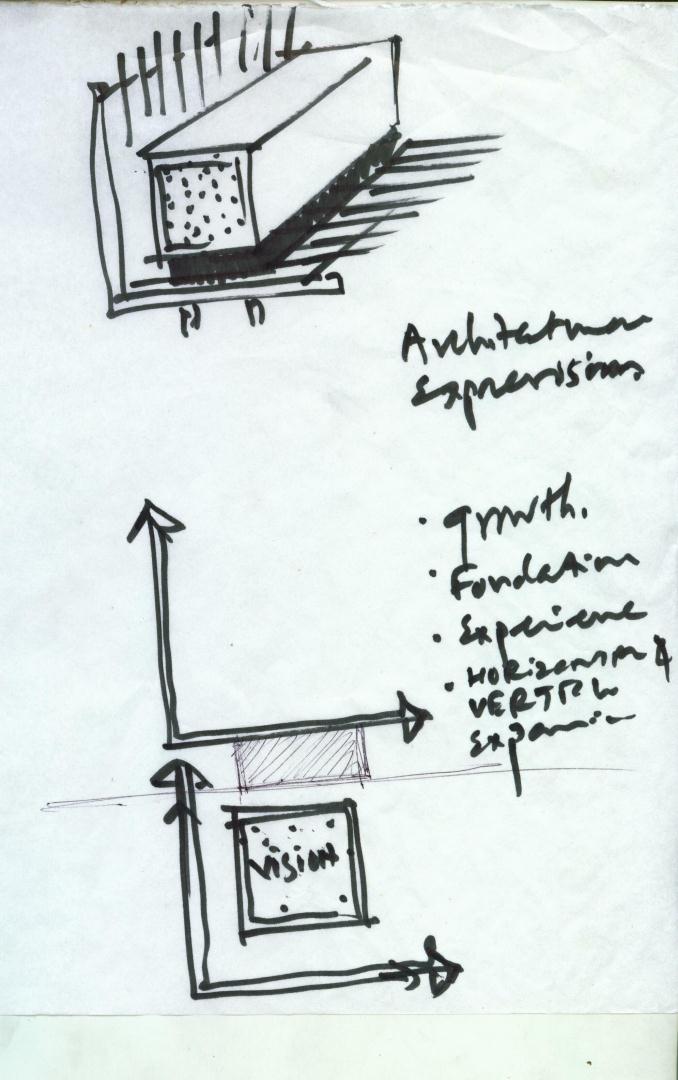 Architecture
Expressions
• growth.
• Fondation
• Experience
• HORIZONTAL &
VERTICAL
Expansion
VISION